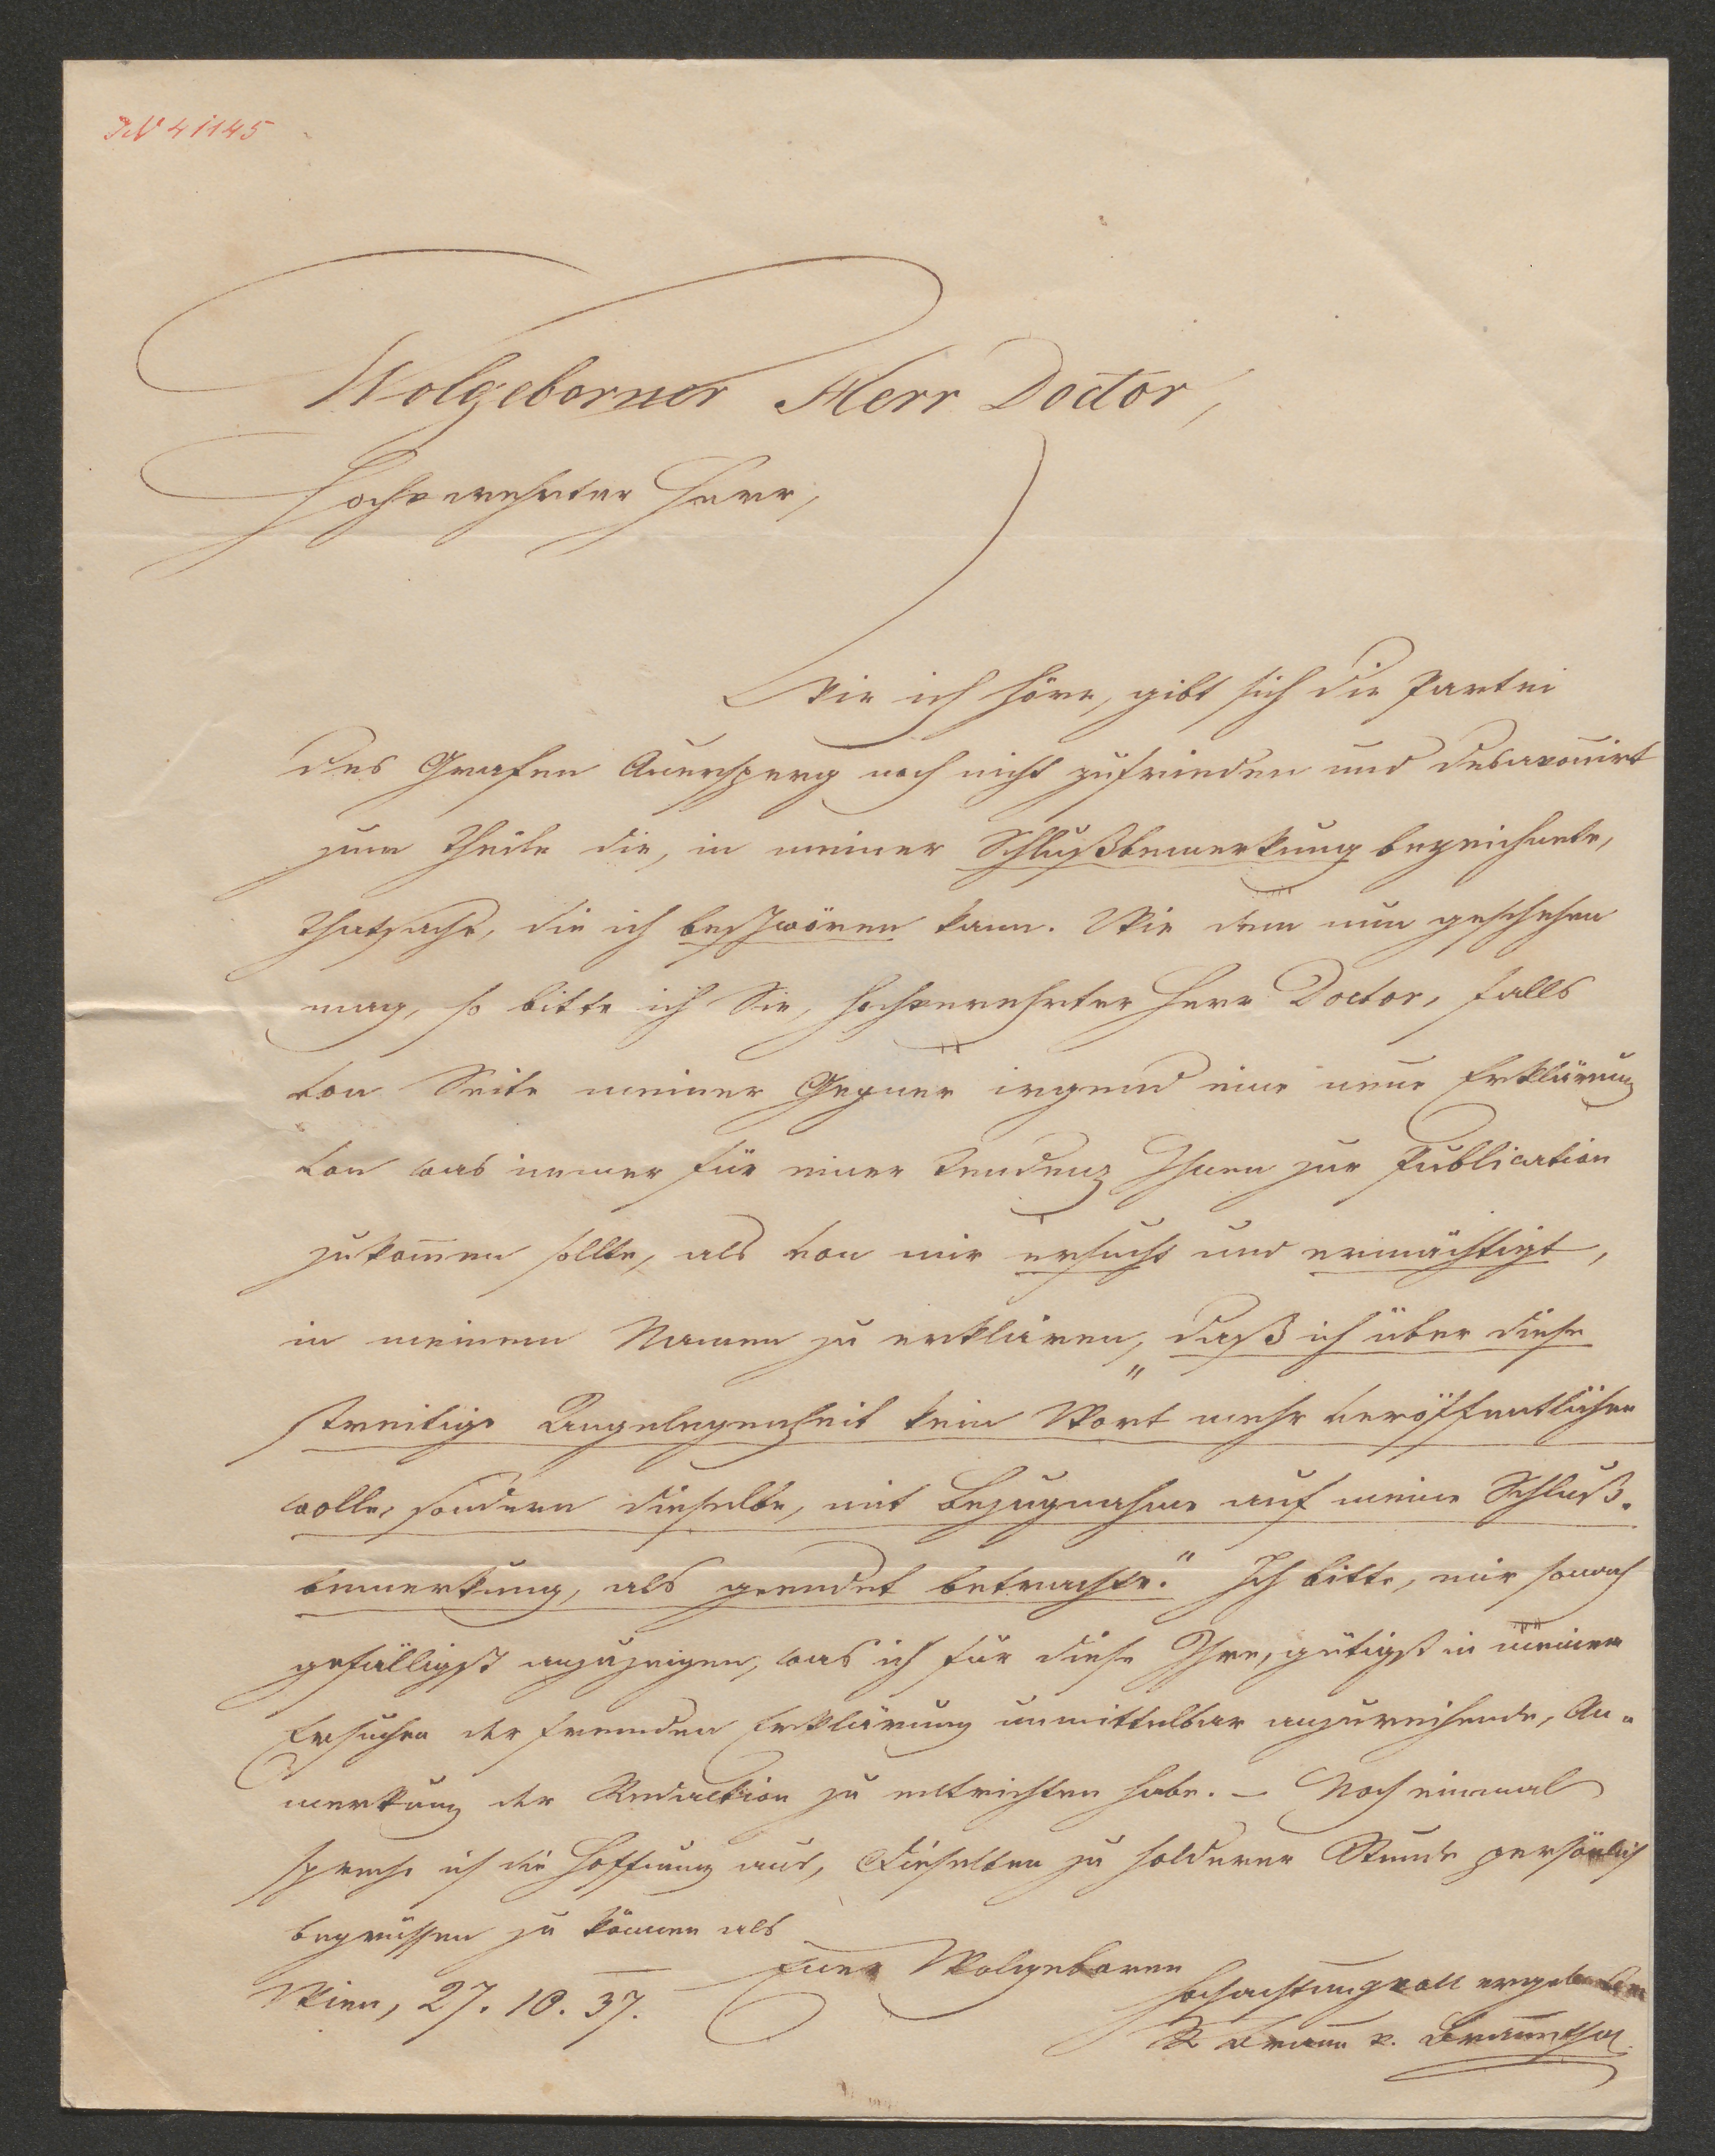 IN 41145
Wolgeborner Herr Doctor,
Hochverehrter Herr,
Wie ich höre, gibt sich die Partei
des Grafen Auersperg noch nicht zufrieden und desavouirt
zum Theile die, in meiner Schlußbemerkung bezeichnete,
Thatsache, die ich beschwören kann. Wie dem nun geschehen
mag, so bitte ich Sie, hochverehrter Herr Doctor, falls
von Seite meiner Gegner irgend eine neue Erklärung
von was immer für einer Tendenz Ihnen zur Publication
zukom̄en sollte, als von mir ersucht und ermächtigt,
in meinem Namen zu erklären, „daß ich über diese
streitige Angelegenheit kein Wort mehr veröffentlichen
wolle, sondern dieselbe, mit Bezugnahme auf meine Schluß-
bemerkung, als geendet betrachte." Ich bitte, mir sonach
gefälligst anzuzeigen, was ich für diese Ihre, gütigst in meinem
Ersuchen der fremden Erklärung unmittelbar anzureihende, An-
merkung der Redaction zu entrichten habe. – Noch einmal
spreche ich die Hoffnung aus, Dieselben zu holderer Stunde persönlich
begrüssen zu können als
Euer Wolgeboren
Wien, 27. 10. 37.
hochachtungsvoll ergebenster
Braun v. Braunthal